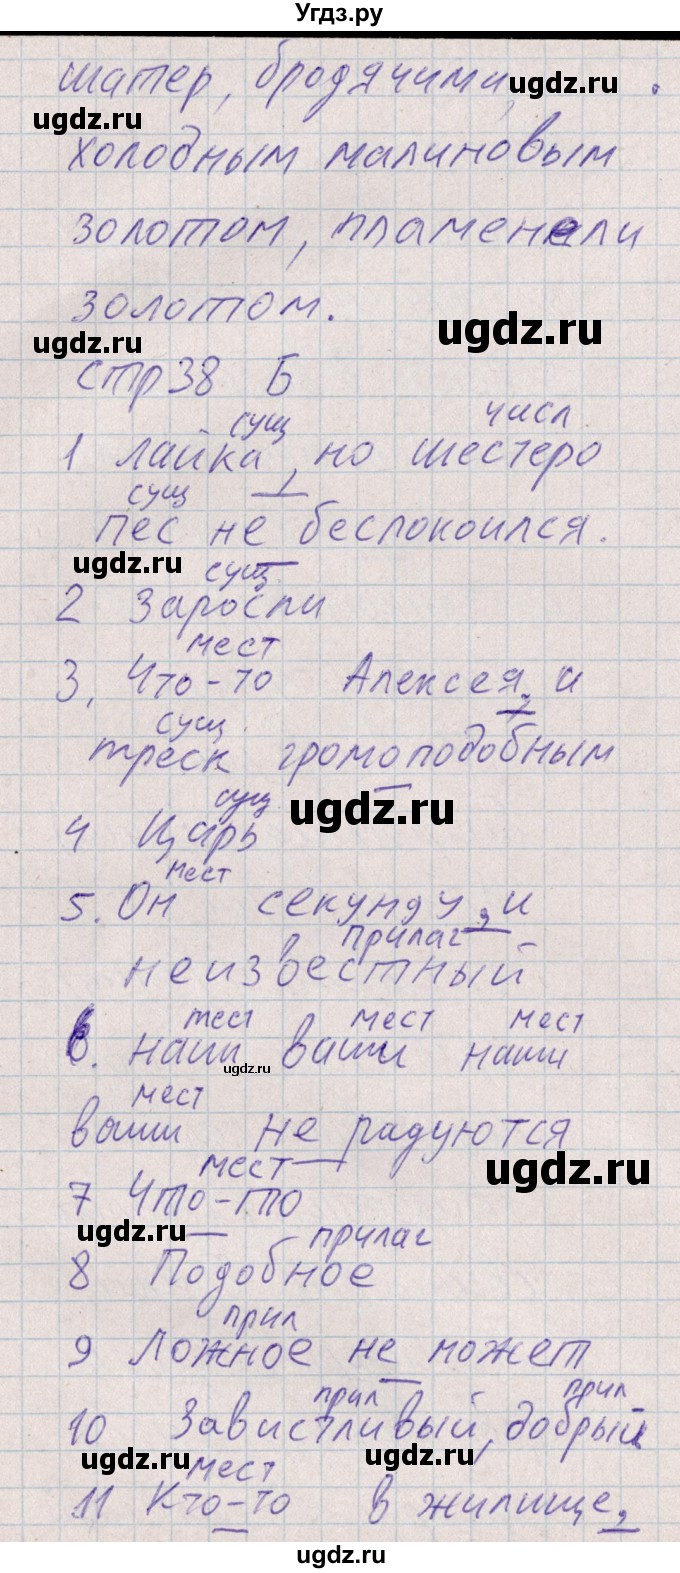 Угдз.ру
шатер, бродячими, ugdz.ru .
ugdz.ru
холодным малиновым
золотом, пламенели
золотом. ugdz.ru
ugdz.ru
стр 38 Б
сущ числ
1 лайка, но шестеро
сущ
пес не беспокоился.
ugdz.ru
сущ
2 Заросли
мест
3, Что-то Алексея, и
сущ
треск громоподобным
сущ ugdz.ru
4 Царь
мест
5. Он секунду, и
прилаг
неизвестный
мест мест мест
6. наши ваши наши
ugdz.ru
мест
ваши не радуются
мест ugdz.ru
7 Что-то
ugdz.ru прилаг
8 Подобное
прил
9 Ложное не может
прил прил
10 Завистливый, добрый
ugdz.ru ugdz.ru
мест
11 Кто-то в жилище,
ugdz.ru